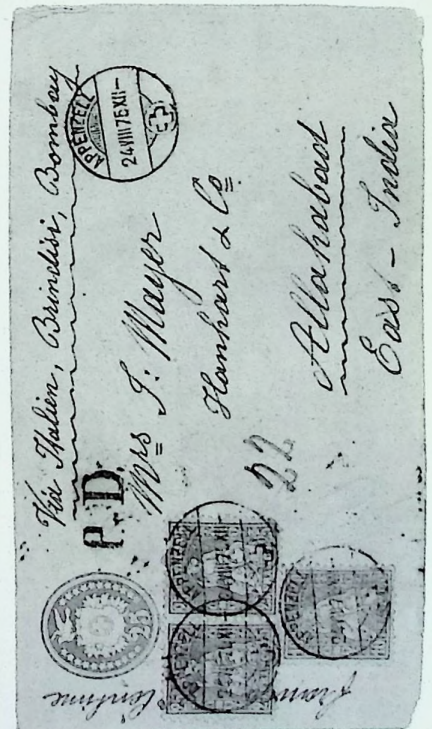 Via Italien, Brindisi, Bombay
APPENZELL
24 VIII 75 XII—
P.D.
Mrs J: Mayer
Hanhart & Co
Allahabad
East - India
22
25
APPENZELL
APPENZELL
APPENZELL